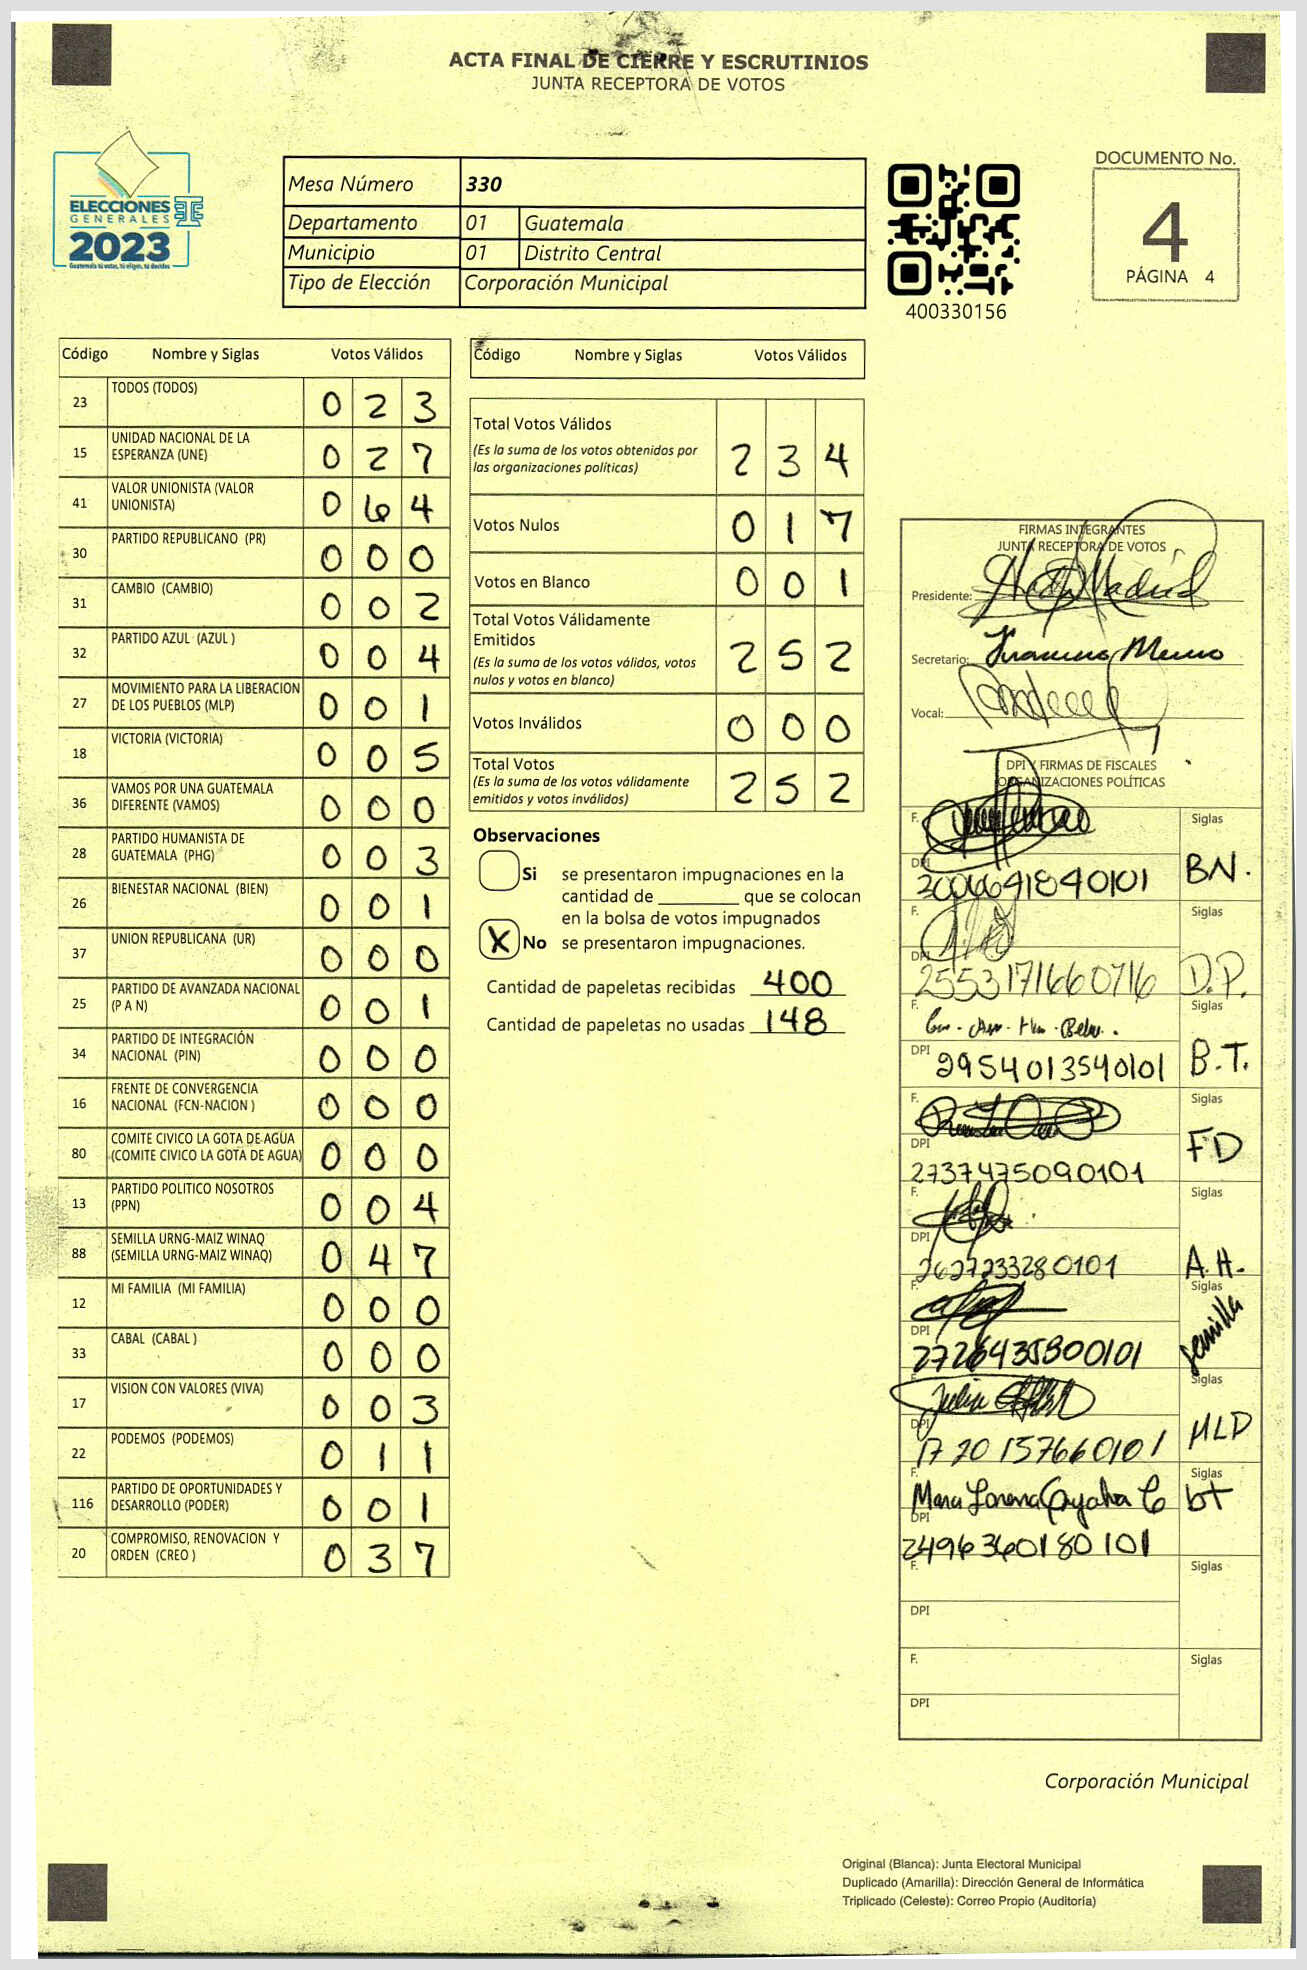 ACTA FINAL DE CIERRE Y ESCRUTINIOS
JUNTA RECEPTORA DE VOTOS
ELECCIONES
GENERALES
2023
Guatemala tú votas, tú eliges, tú decides
TSE
Mesa Número 330
Departamento 01 Guatemala
Municipio 01 Distrito Central
Tipo de Elección Corporación Municipal
400330156
DOCUMENTO No.
4
PÁGINA 4
Código Nombre y Siglas Votos Válidos
23 TODOS (TODOS) 0 2 3
15 UNIDAD NACIONAL DE LA
ESPERANZA (UNE) 0 2 7
41 VALOR UNIONISTA (VALOR
UNIONISTA) 0 6 4
30 PARTIDO REPUBLICANO (PR) 0 0 0
31 CAMBIO (CAMBIO) 0 0 2
32 PARTIDO AZUL (AZUL ) 0 0 4
27 MOVIMIENTO PARA LA LIBERACION
DE LOS PUEBLOS (MLP) 0 0 1
18 VICTORIA (VICTORIA) 0 0 5
36 VAMOS POR UNA GUATEMALA
DIFERENTE (VAMOS) 0 0 0
28 PARTIDO HUMANISTA DE
GUATEMALA (PHG) 0 0 3
26 BIENESTAR NACIONAL (BIEN) 0 0 1
37 UNION REPUBLICANA (UR) 0 0 0
25 PARTIDO DE AVANZADA NACIONAL
(P A N) 0 0 1
34 PARTIDO DE INTEGRACIÓN
NACIONAL (PIN) 0 0 0
16 FRENTE DE CONVERGENCIA
NACIONAL (FCN-NACION ) 0 0 0
80 COMITE CIVICO LA GOTA DE AGUA
(COMITE CIVICO LA GOTA DE AGUA) 0 0 0
13 PARTIDO POLITICO NOSOTROS
(PPN) 0 0 4
88 SEMILLA URNG-MAIZ WINAQ
(SEMILLA URNG-MAIZ WINAQ) 0 4 7
12 MI FAMILIA (MI FAMILIA) 0 0 0
33 CABAL (CABAL ) 0 0 0
17 VISION CON VALORES (VIVA) 0 0 3
22 PODEMOS (PODEMOS) 0 1 1
116 PARTIDO DE OPORTUNIDADES Y
DESARROLLO (PODER) 0 0 1
20 COMPROMISO, RENOVACION Y
ORDEN (CREO ) 0 3 7
Código Nombre y Siglas Votos Válidos
Total Votos Válidos
(Es la suma de los votos obtenidos por
las organizaciones políticas) 2 3 4
Votos Nulos 0 1 7
Votos en Blanco 0 0 1
Total Votos Válidamente
Emitidos
(Es la suma de los votos válidos, votos
nulos y votos en blanco) 2 5 2
Votos Inválidos 0 0 0
Total Votos
(Es la suma de los votos válidamente
emitidos y votos inválidos) 2 5 2
Observaciones
Si se presentaron impugnaciones en la
cantidad de ________ que se colocan
en la bolsa de votos impugnados
X No se presentaron impugnaciones.
Cantidad de papeletas recibidas 400
Cantidad de papeletas no usadas 148
FIRMAS INTEGRANTES
JUNTA RECEPTORA DE VOTOS
Presidente:
Secretario:
Vocal:
DPI Y FIRMAS DE FISCALES
ORGANIZACIONES POLÍTICAS
F. Siglas
DPI BN.
F. Siglas
DPI 2553171660716 D.P.
F. Siglas
DPI 2954013540101 B.T.
F. Siglas
DPI 2737475090101 FD
F. Siglas
DPI 2627233280101 A.H.
F. Siglas
DPI 2726435800101 Semilla
F. Siglas
DPI 1720157660101 MLP
F. Siglas
DPI 2496360180101 bt
F. Siglas
DPI
F. Siglas
DPI
Corporación Municipal
Original (Blanca): Junta Electoral Municipal
Duplicado (Amarilla): Dirección General de Informática
Triplicado (Celeste): Correo Propio (Auditoría)